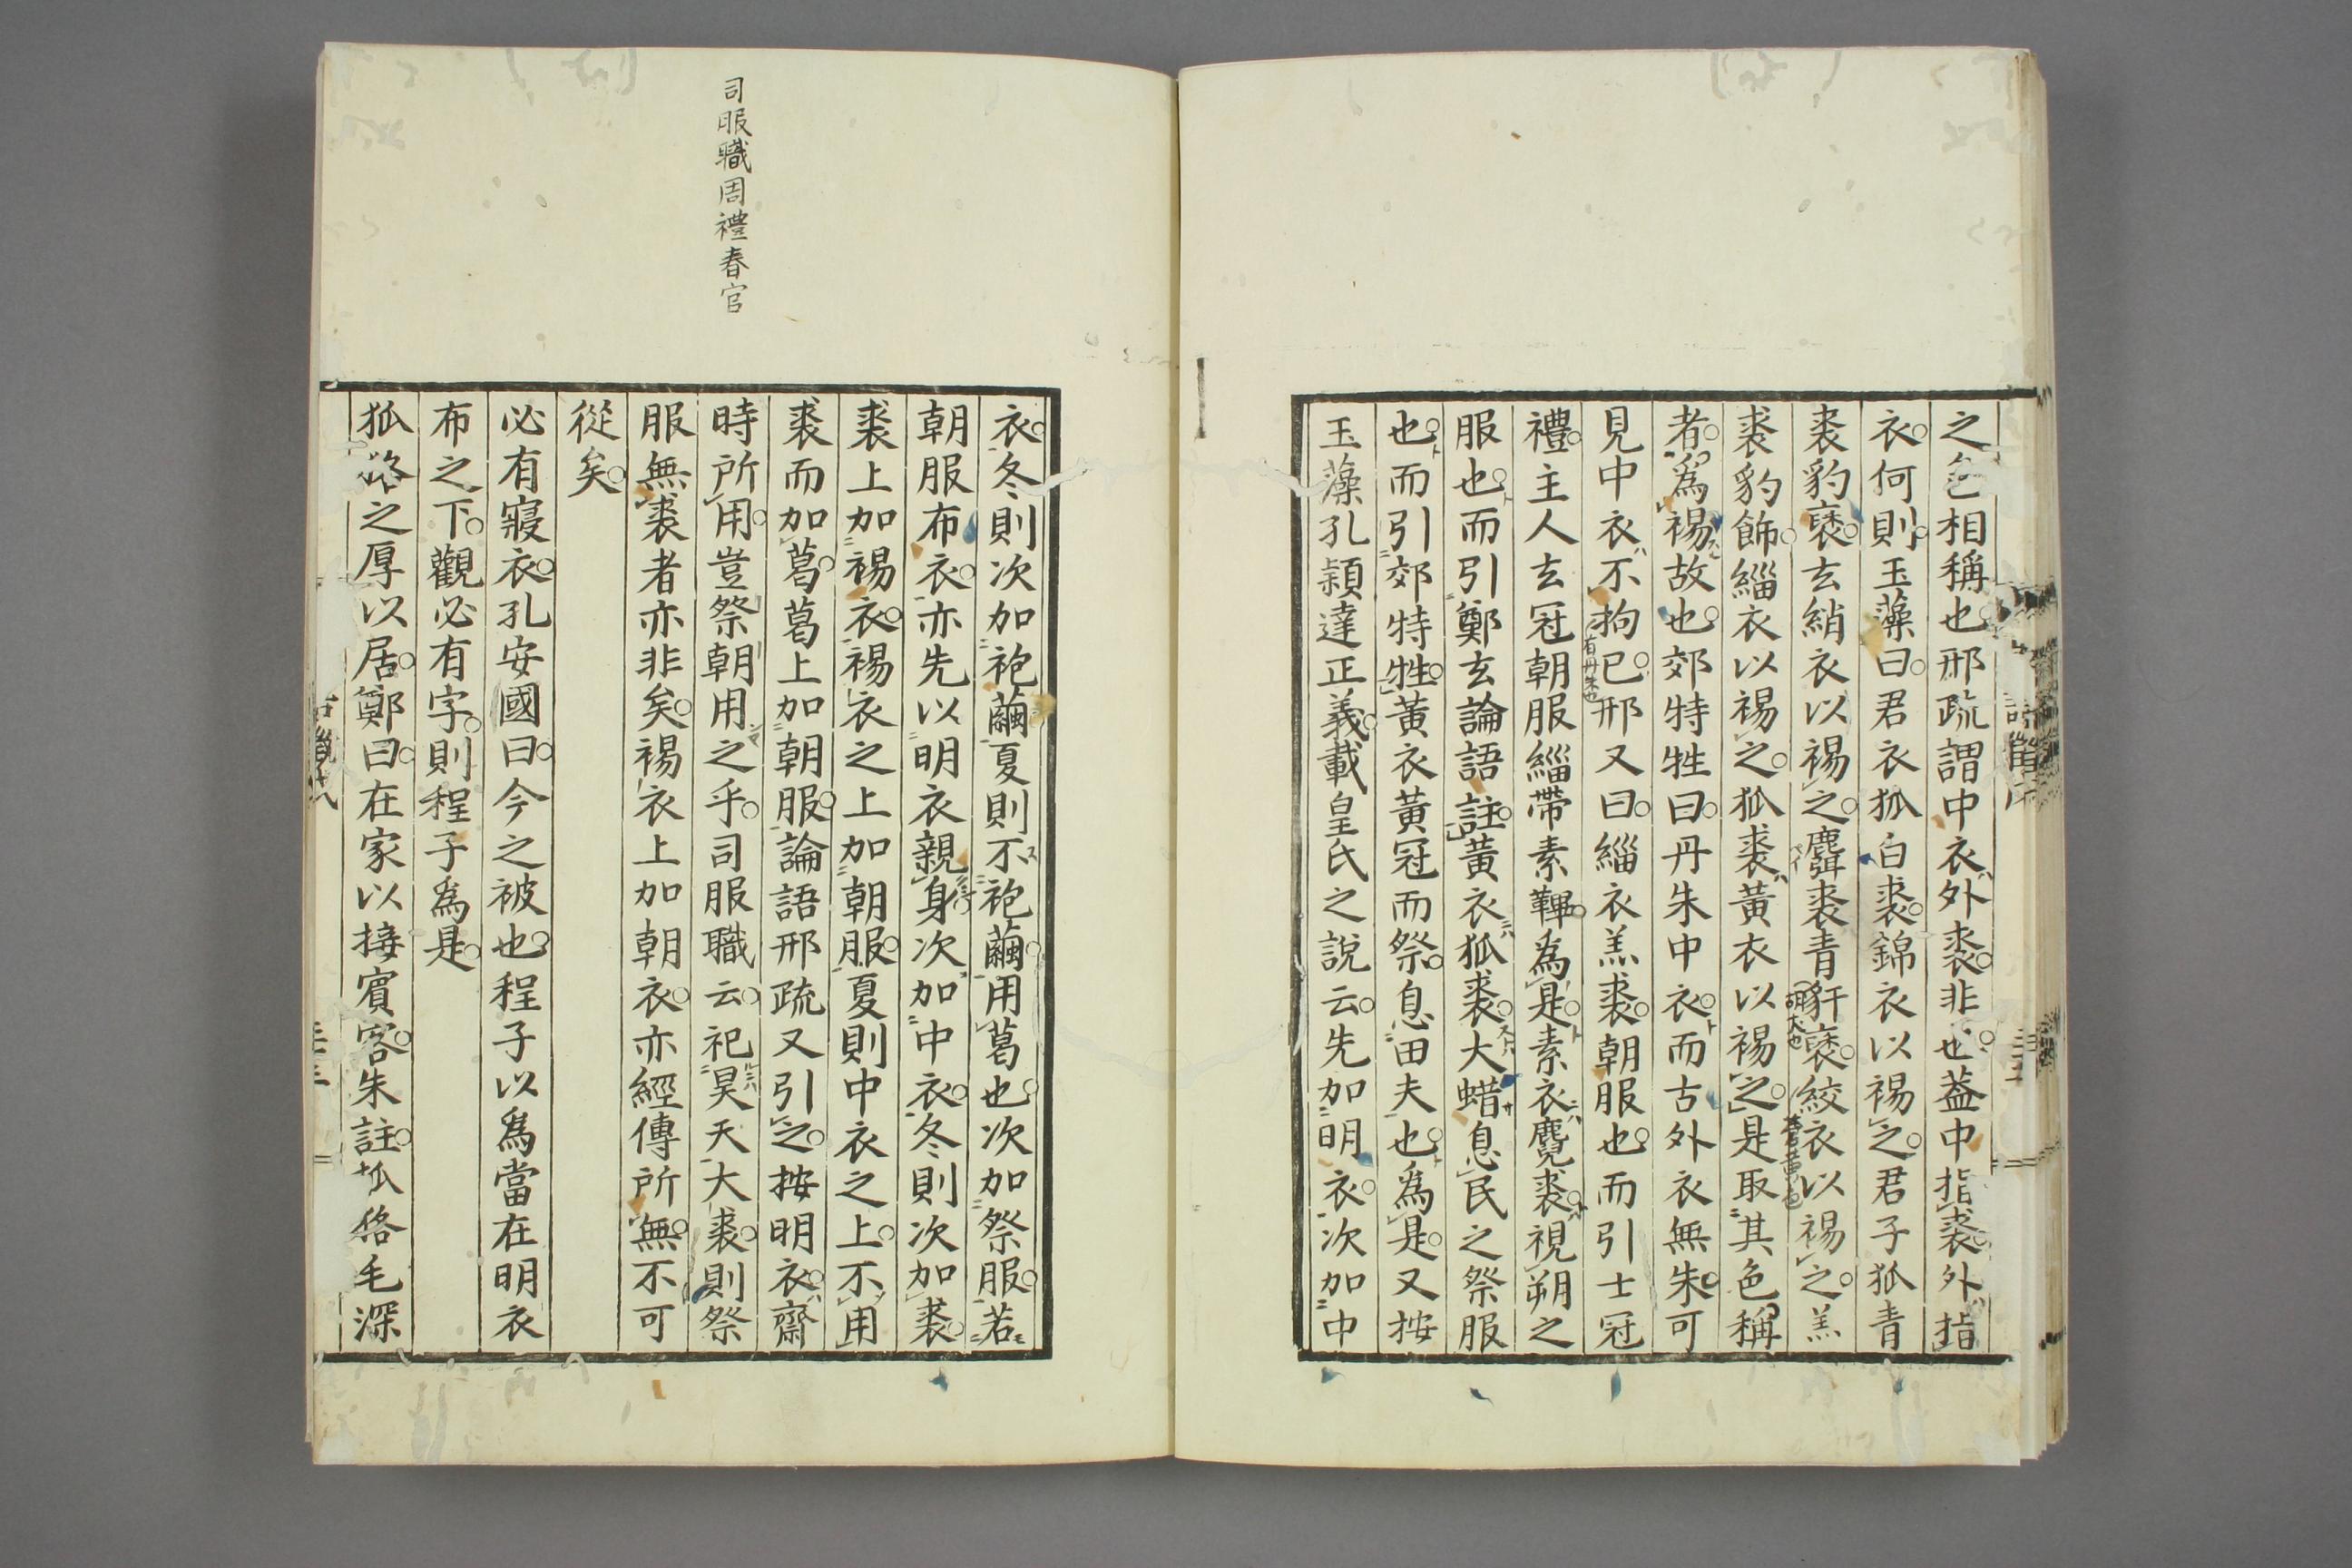 之色相稱也邢疏謂中衣外裘非也蓋中指裘外指
衣何則玉藻曰君衣狐白裘錦衣以裼之君子狐青
裘豹褎玄綃衣以裼之麛裘青豻褎絞衣以裼之羔
裘豹飾緇衣以裼之狐裘黃衣以裼之是取其色稱
者爲裼故也郊特牲曰丹朱中衣而古外衣無朱可
見中衣不拘已邢又曰緇衣羔裘朝服也而引士冠
禮主人玄冠朝服緇帶素鞸爲是素衣麑裘視朔之
服也而引鄭玄論語註黃衣狐裘大蜡息民之祭服
也而引郊特牲黃衣黃冠而祭息田夫也爲是又按
玉藻孔穎達正義載皇氏之說云先加明衣次加中
衣冬則次加袍繭夏則不袍繭用葛也次加祭服若
朝服布衣亦先以明衣親身次加中衣冬則次加裘
裘上加裼衣裼衣之上加朝服夏則中衣之上不用
裘而加葛葛上加朝服論語邢疏又引之按明衣齋
時所用豈祭朝用之乎司服職云祀昊天大裘則祭
服無裘者亦非矣裼衣上加朝衣亦經傳所無不可
從矣
必有寢衣孔安國曰今之被也程子以爲當在明衣
布之下觀必有字則程子爲是
狐狢之厚以居鄭曰在家以接賓客朱註狐狢毛深
司服職周禮春官